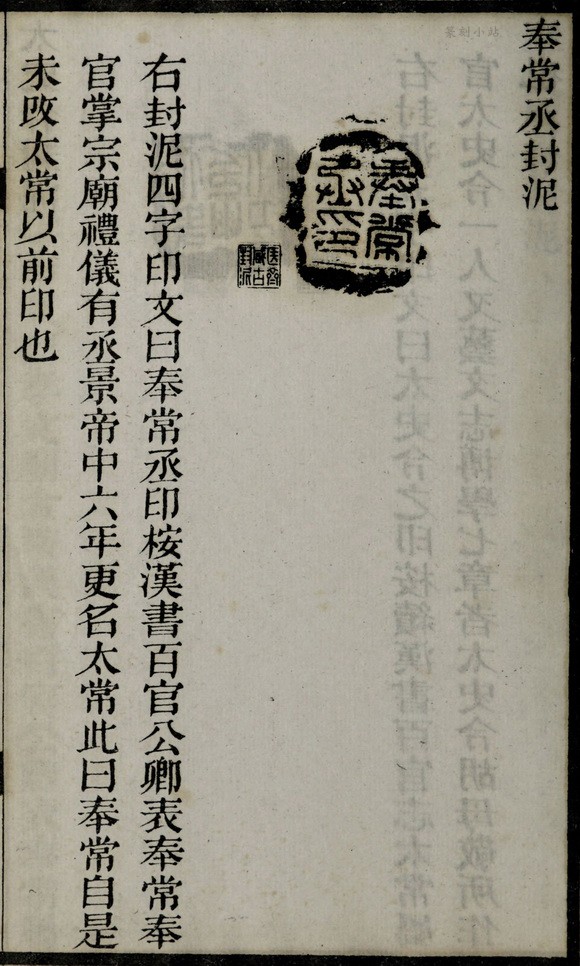 奉常丞封泥
奉常
丞印
右封泥四字印文曰奉常丞印桉漢書百官公卿表奉常奉
官掌宗廟禮儀有丞景帝中六年更名太常此曰奉常自是
未改太常以前印也
篆刻小站